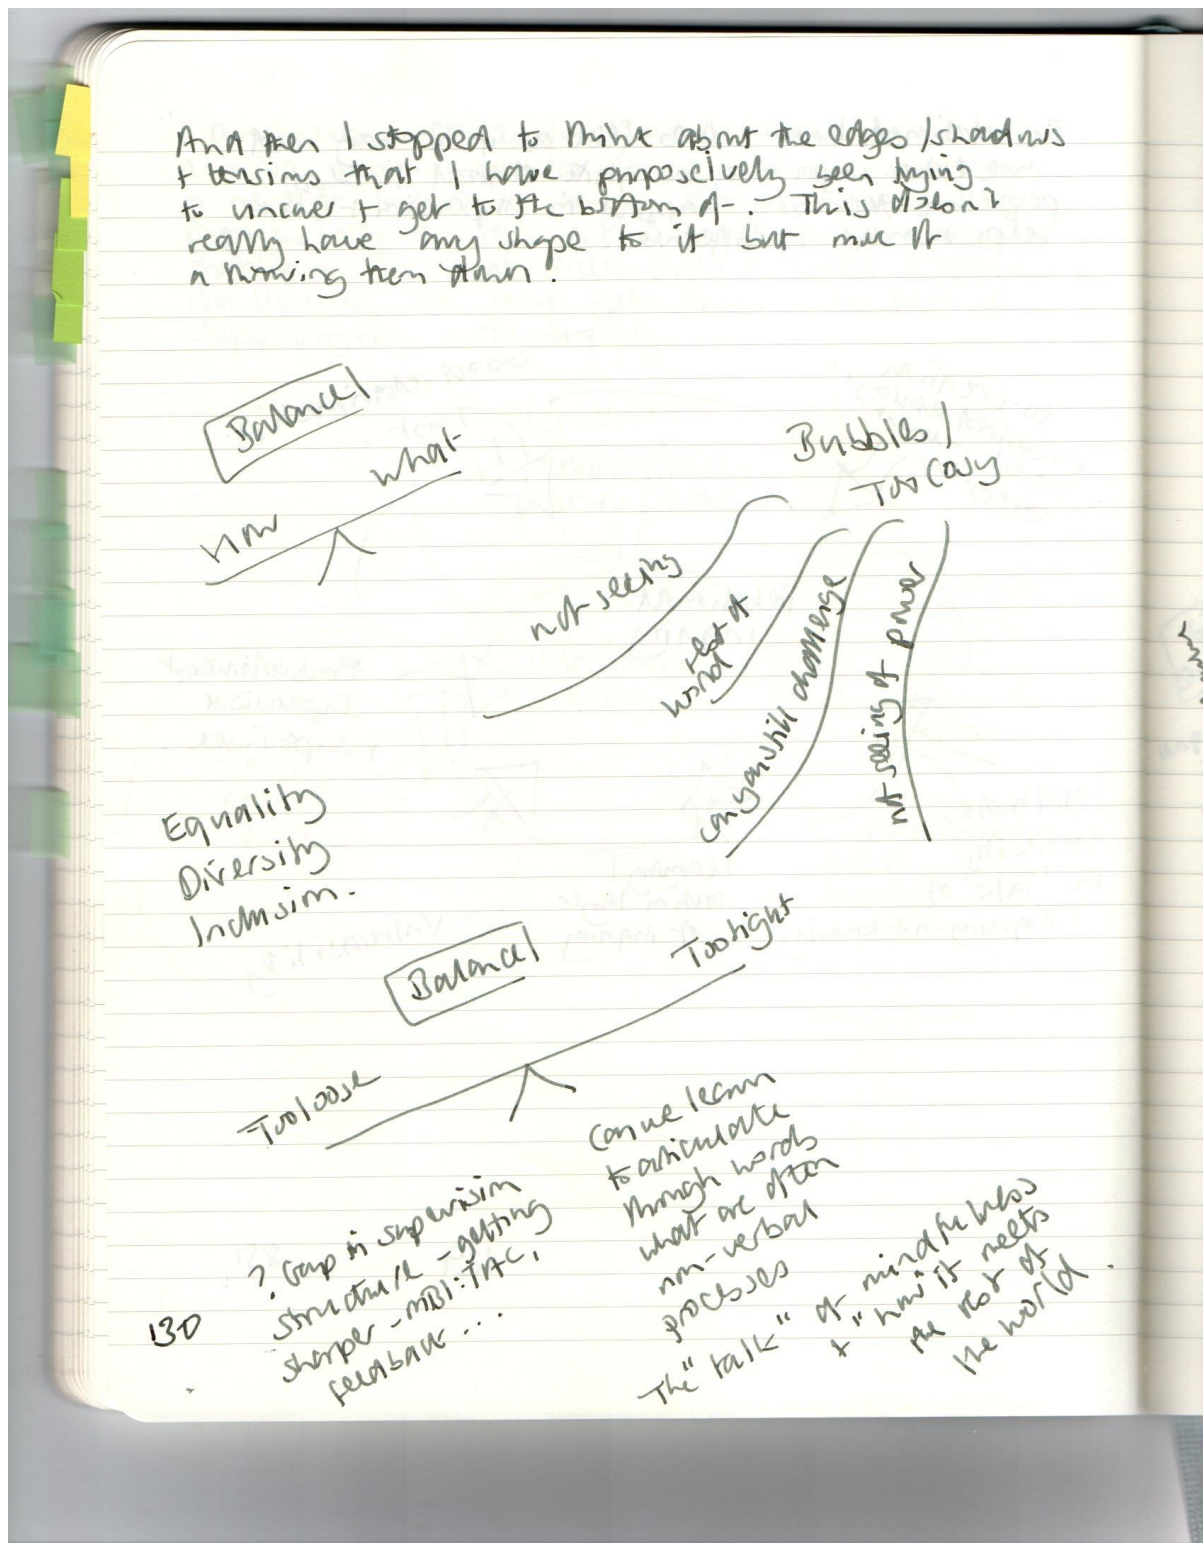 And then I stopped to think about the edges / shadows
+ tensions that I have purposively been trying
to uncover + get to the bottom of -. This doesn't
really have any shape to it but more of
a throwing them down.
Balance
what
how
Bubbles /
Too Cosy
not seeing
rest of
world
can you still challenge
not seeing of power
Equality
Diversity
Inclusion.
Balance
Too tight
Too loose
? Gap in supervision
structure - getting
sharper - MBI:TAC,
feedback ...
Can we learn
to articulate
through words
what are often
non-verbal
processes
The "talk" of mindfulness
+ "how it meets
the rest of
the world.
130